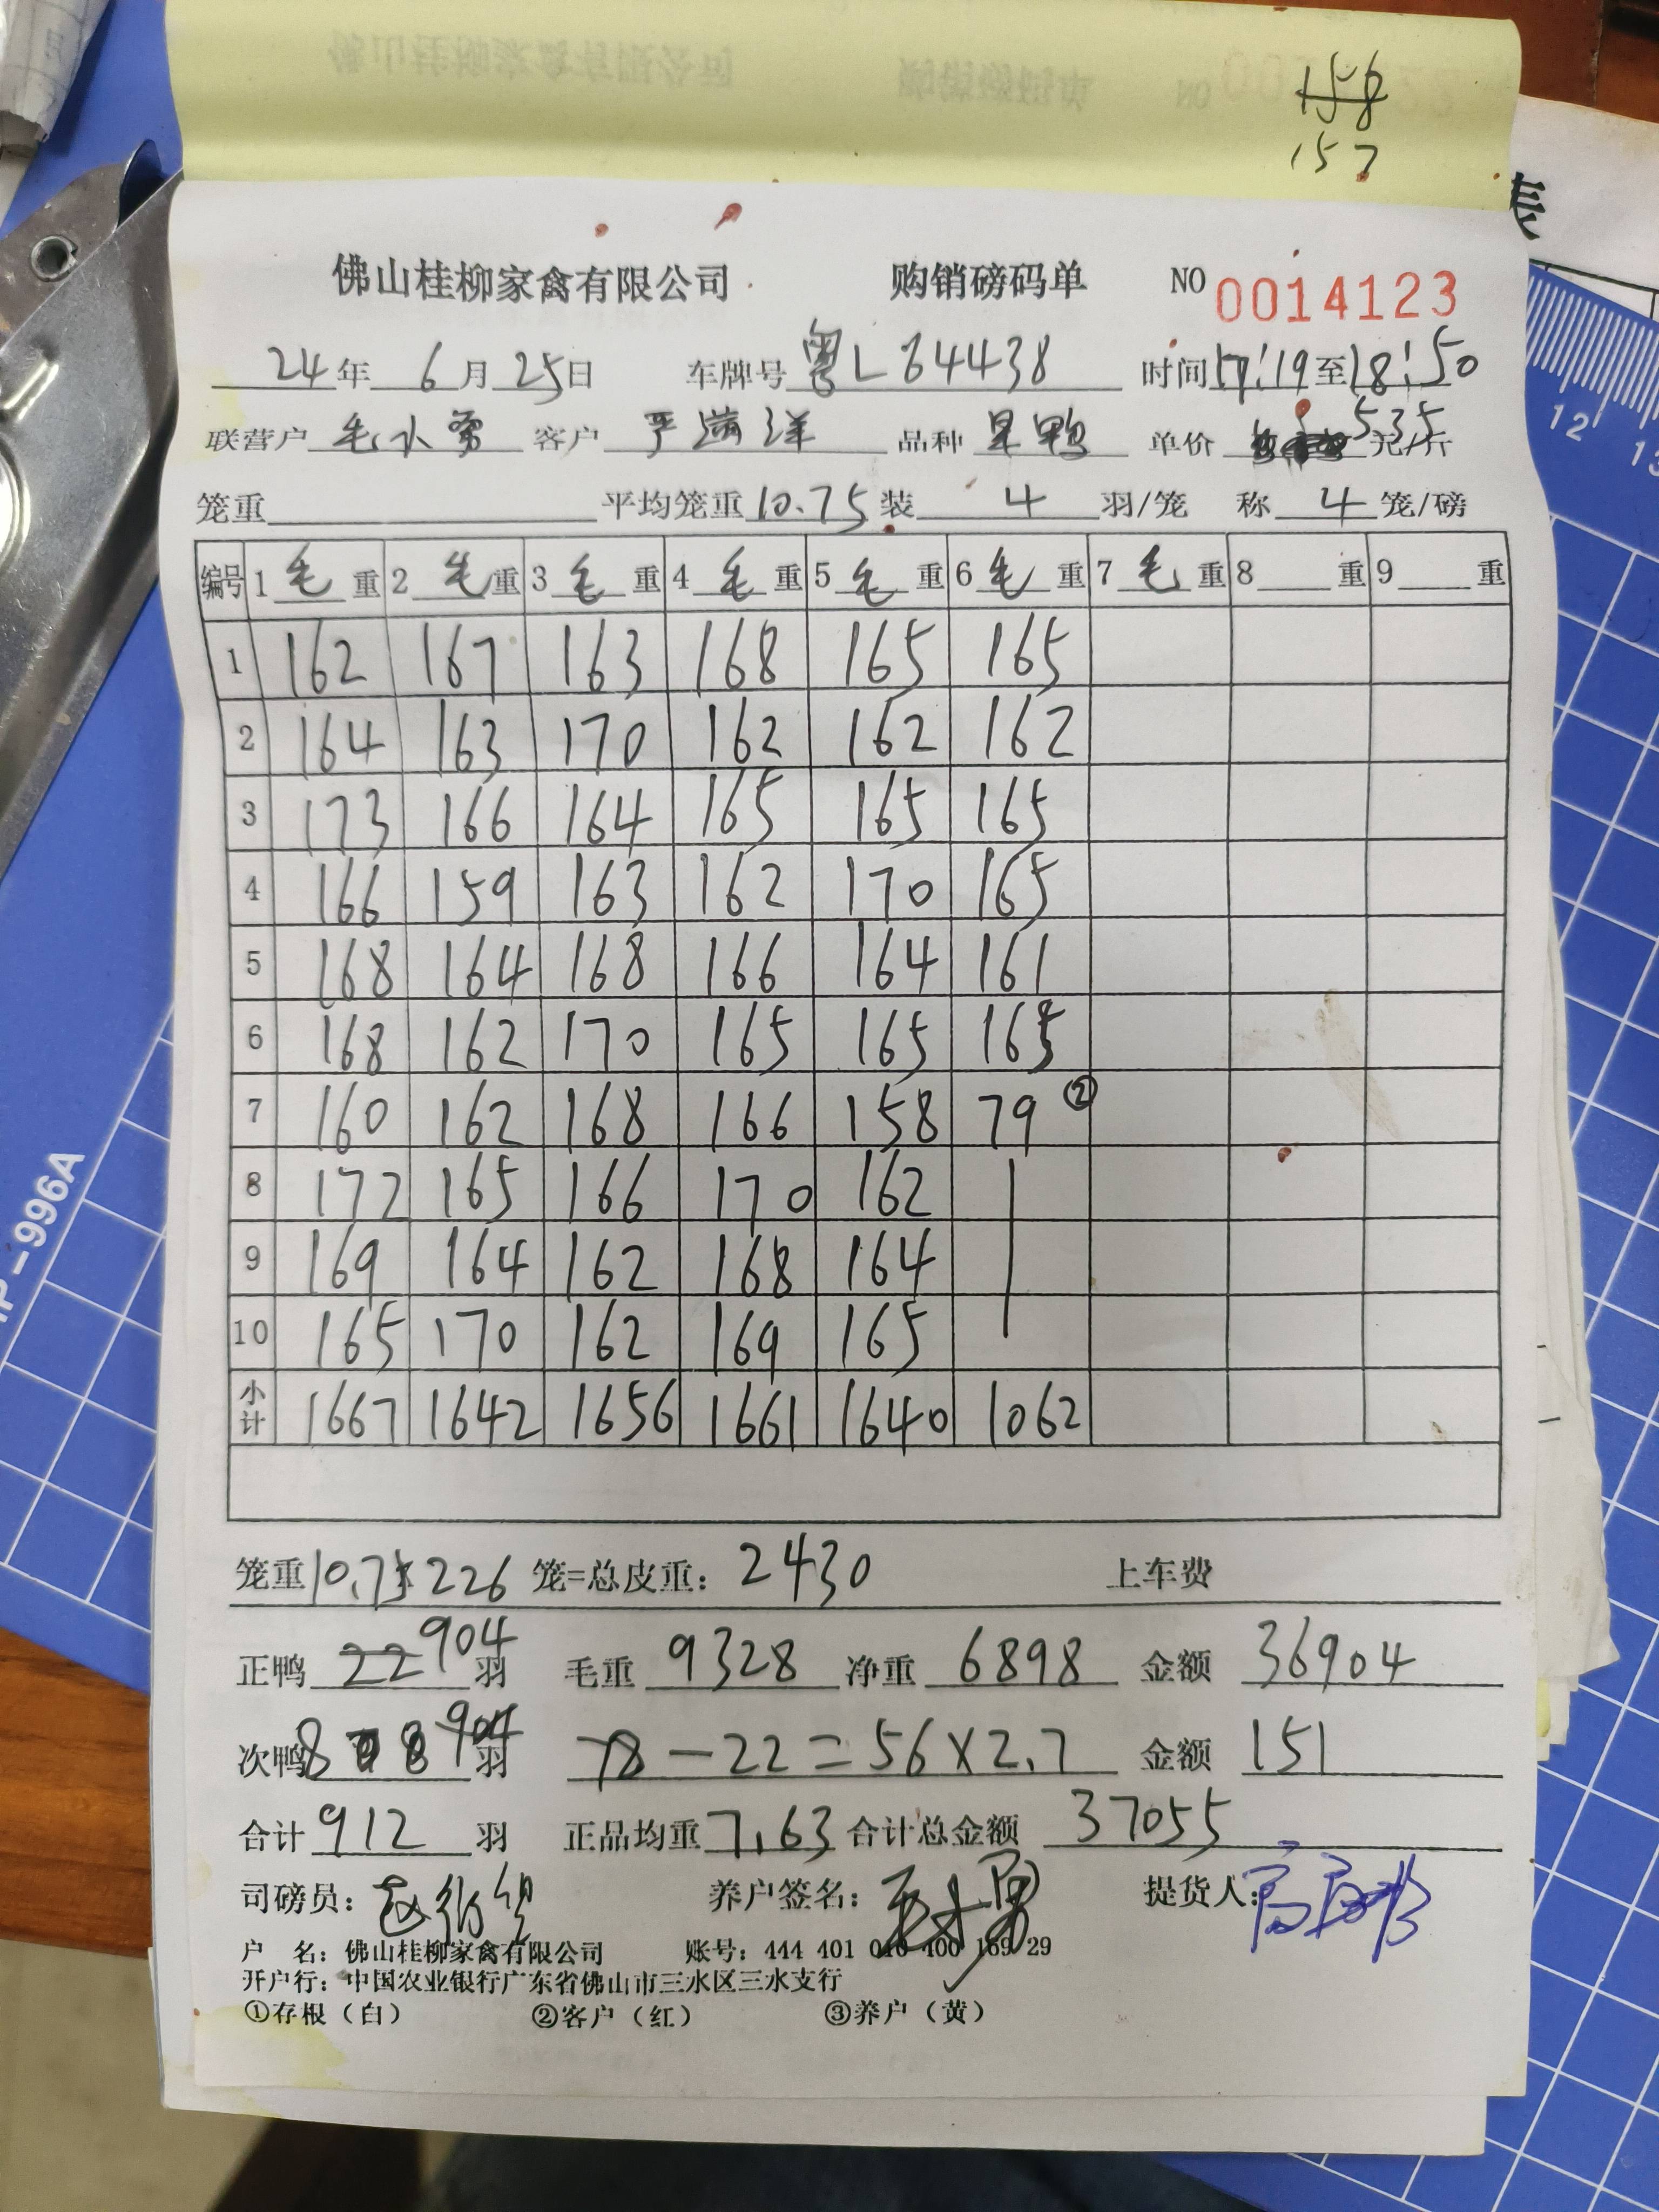 158
157
佛山桂柳家禽有限公司 购销磅码单 NO 0014123
24年 6月 25日 车牌号 粤L64438 时间 17:19至18:50
联营户 毛 客户 严满洋 品种 单价 5.35 元/斤
笼重 平均笼重 10.75 装 4 羽/笼 称 4 笼/磅
编号 1 毛 重 2 毛 重 3 毛 重 4 毛 重 5 毛 重 6 毛 重 7 毛 重 8 重 9 重
1 162 167 163 168 165 165
2 164 163 170 162 162 162
3 173 166 164 165 165 165
4 166 159 163 162 170 165
5 168 164 168 166 164 161
6 168 162 170 165 165 165
7 160 162 168 166 158 79 ②
8 172 165 166 170 162
9 169 164 162 168 164
10 165 170 162 169 165
小计 1667 1642 1656 1661 1640 1062
笼重 10.75×226 笼=总皮重: 2430 上车费
正鸭 22 904 羽 毛重 9328 净重 6898 金额 36904
次鸭 8 904 羽 78-22=56×2.7 金额 151
合计 912 羽 正品均重 7.63 合计总金额 37055
司磅员: 养户签名: 提货人:
户 名: 佛山桂柳家禽有限公司 账号: 444 401 010 400 169 29
开户行: 中国农业银行广东省佛山市三水区三水支行
①存根（白） ②客户（红） ③养户（黄）
表
12 13
P-996A